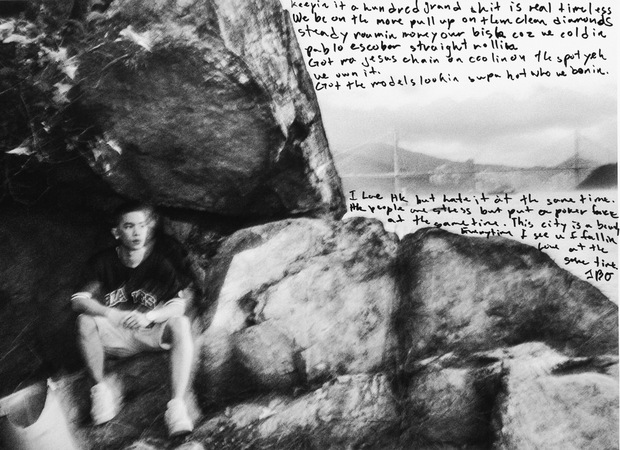 keepin it a hundred grand shit is real timeless
We be on the move pull up on them clean diamonds
steady runnin money our coz we cold in
pablo escobar straight
Got ma jesus chain on coolin on the spot yeh
we own it.
Got the models lookin supa hot who we bonin.
I Love HK but hate it at the same time.
HK people on stress but put a poker face
at the same time. This city is a beauty
Everytime I see u I fallin
love at the
same time